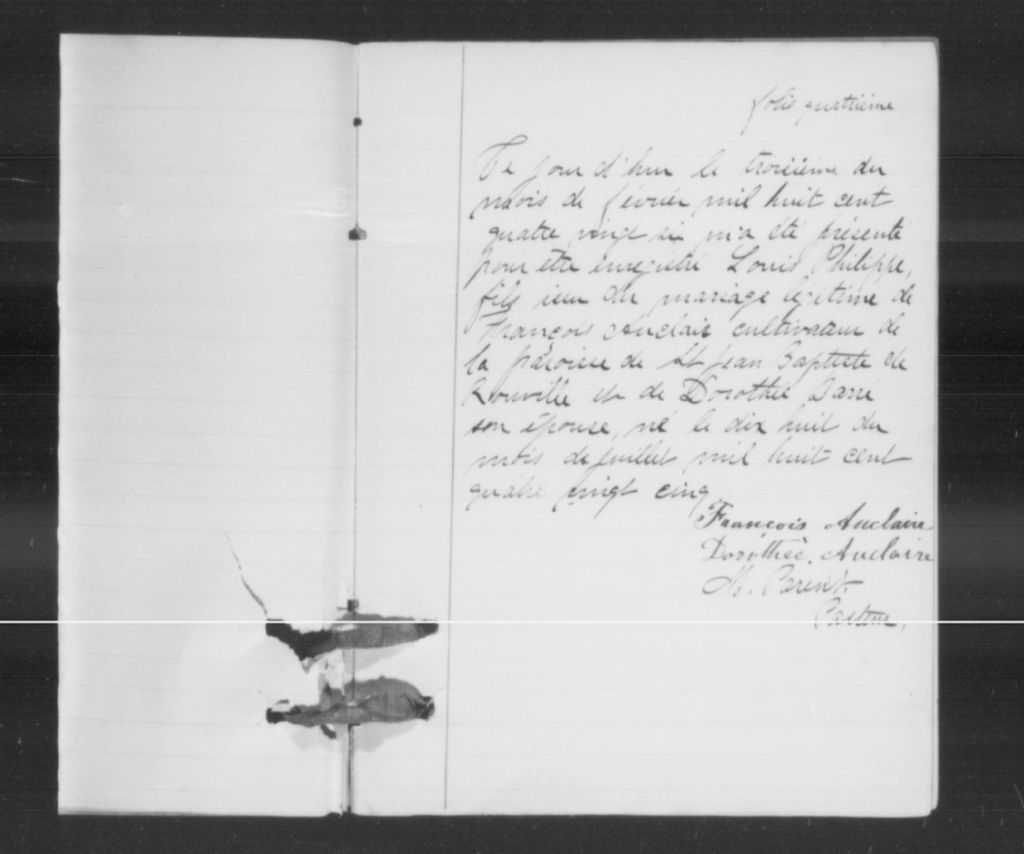 folio quatrième
Ce jour d'hui le troisième du
mois de février mil huit cent
quatre vingt six m'a été présenté
pour être enregistré Louis Philippe,
fils issu du mariage légitime de
François Auclair cultivateur de
la paroisse de St Jean Baptiste de
Rouville et de Dorothée Barré
son épouse, né le dix huit du
mois de juillet mil huit cent
quatre vingt cinq.
François Auclaire
Dorothée. Auclaire
M. Parent.
Pasteur,